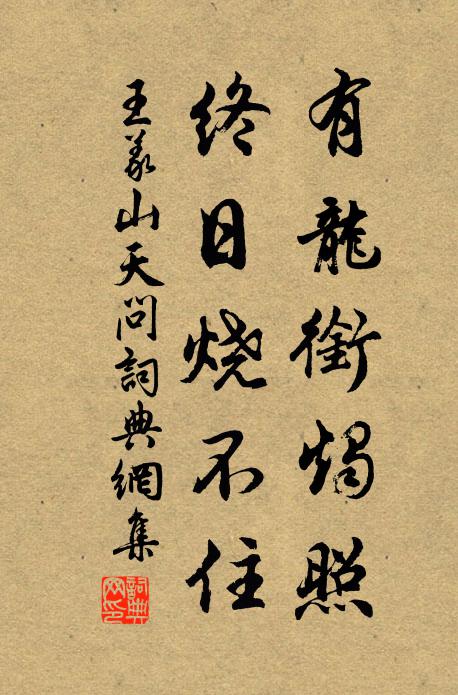 有龍銜燭照
終日燒不住
王義山天問詞典網集
詞典网印